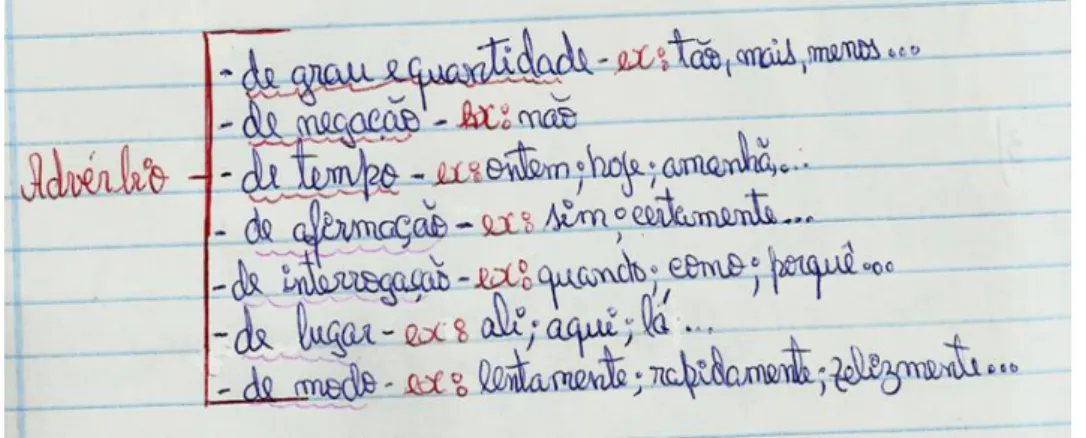 - de grau e quantidade - ex: tão, mais, menos...
- de negação - ex: não
Advérbio - de tempo - ex: ontem; hoje; amanhã,...
- de afirmação - ex: sim; certamente...
- de interrogação - ex: quando; como; porquê...
- de lugar - ex: ali; aqui; lá ...
- de modo - ex: lentamente; rapidamente; felizmente...